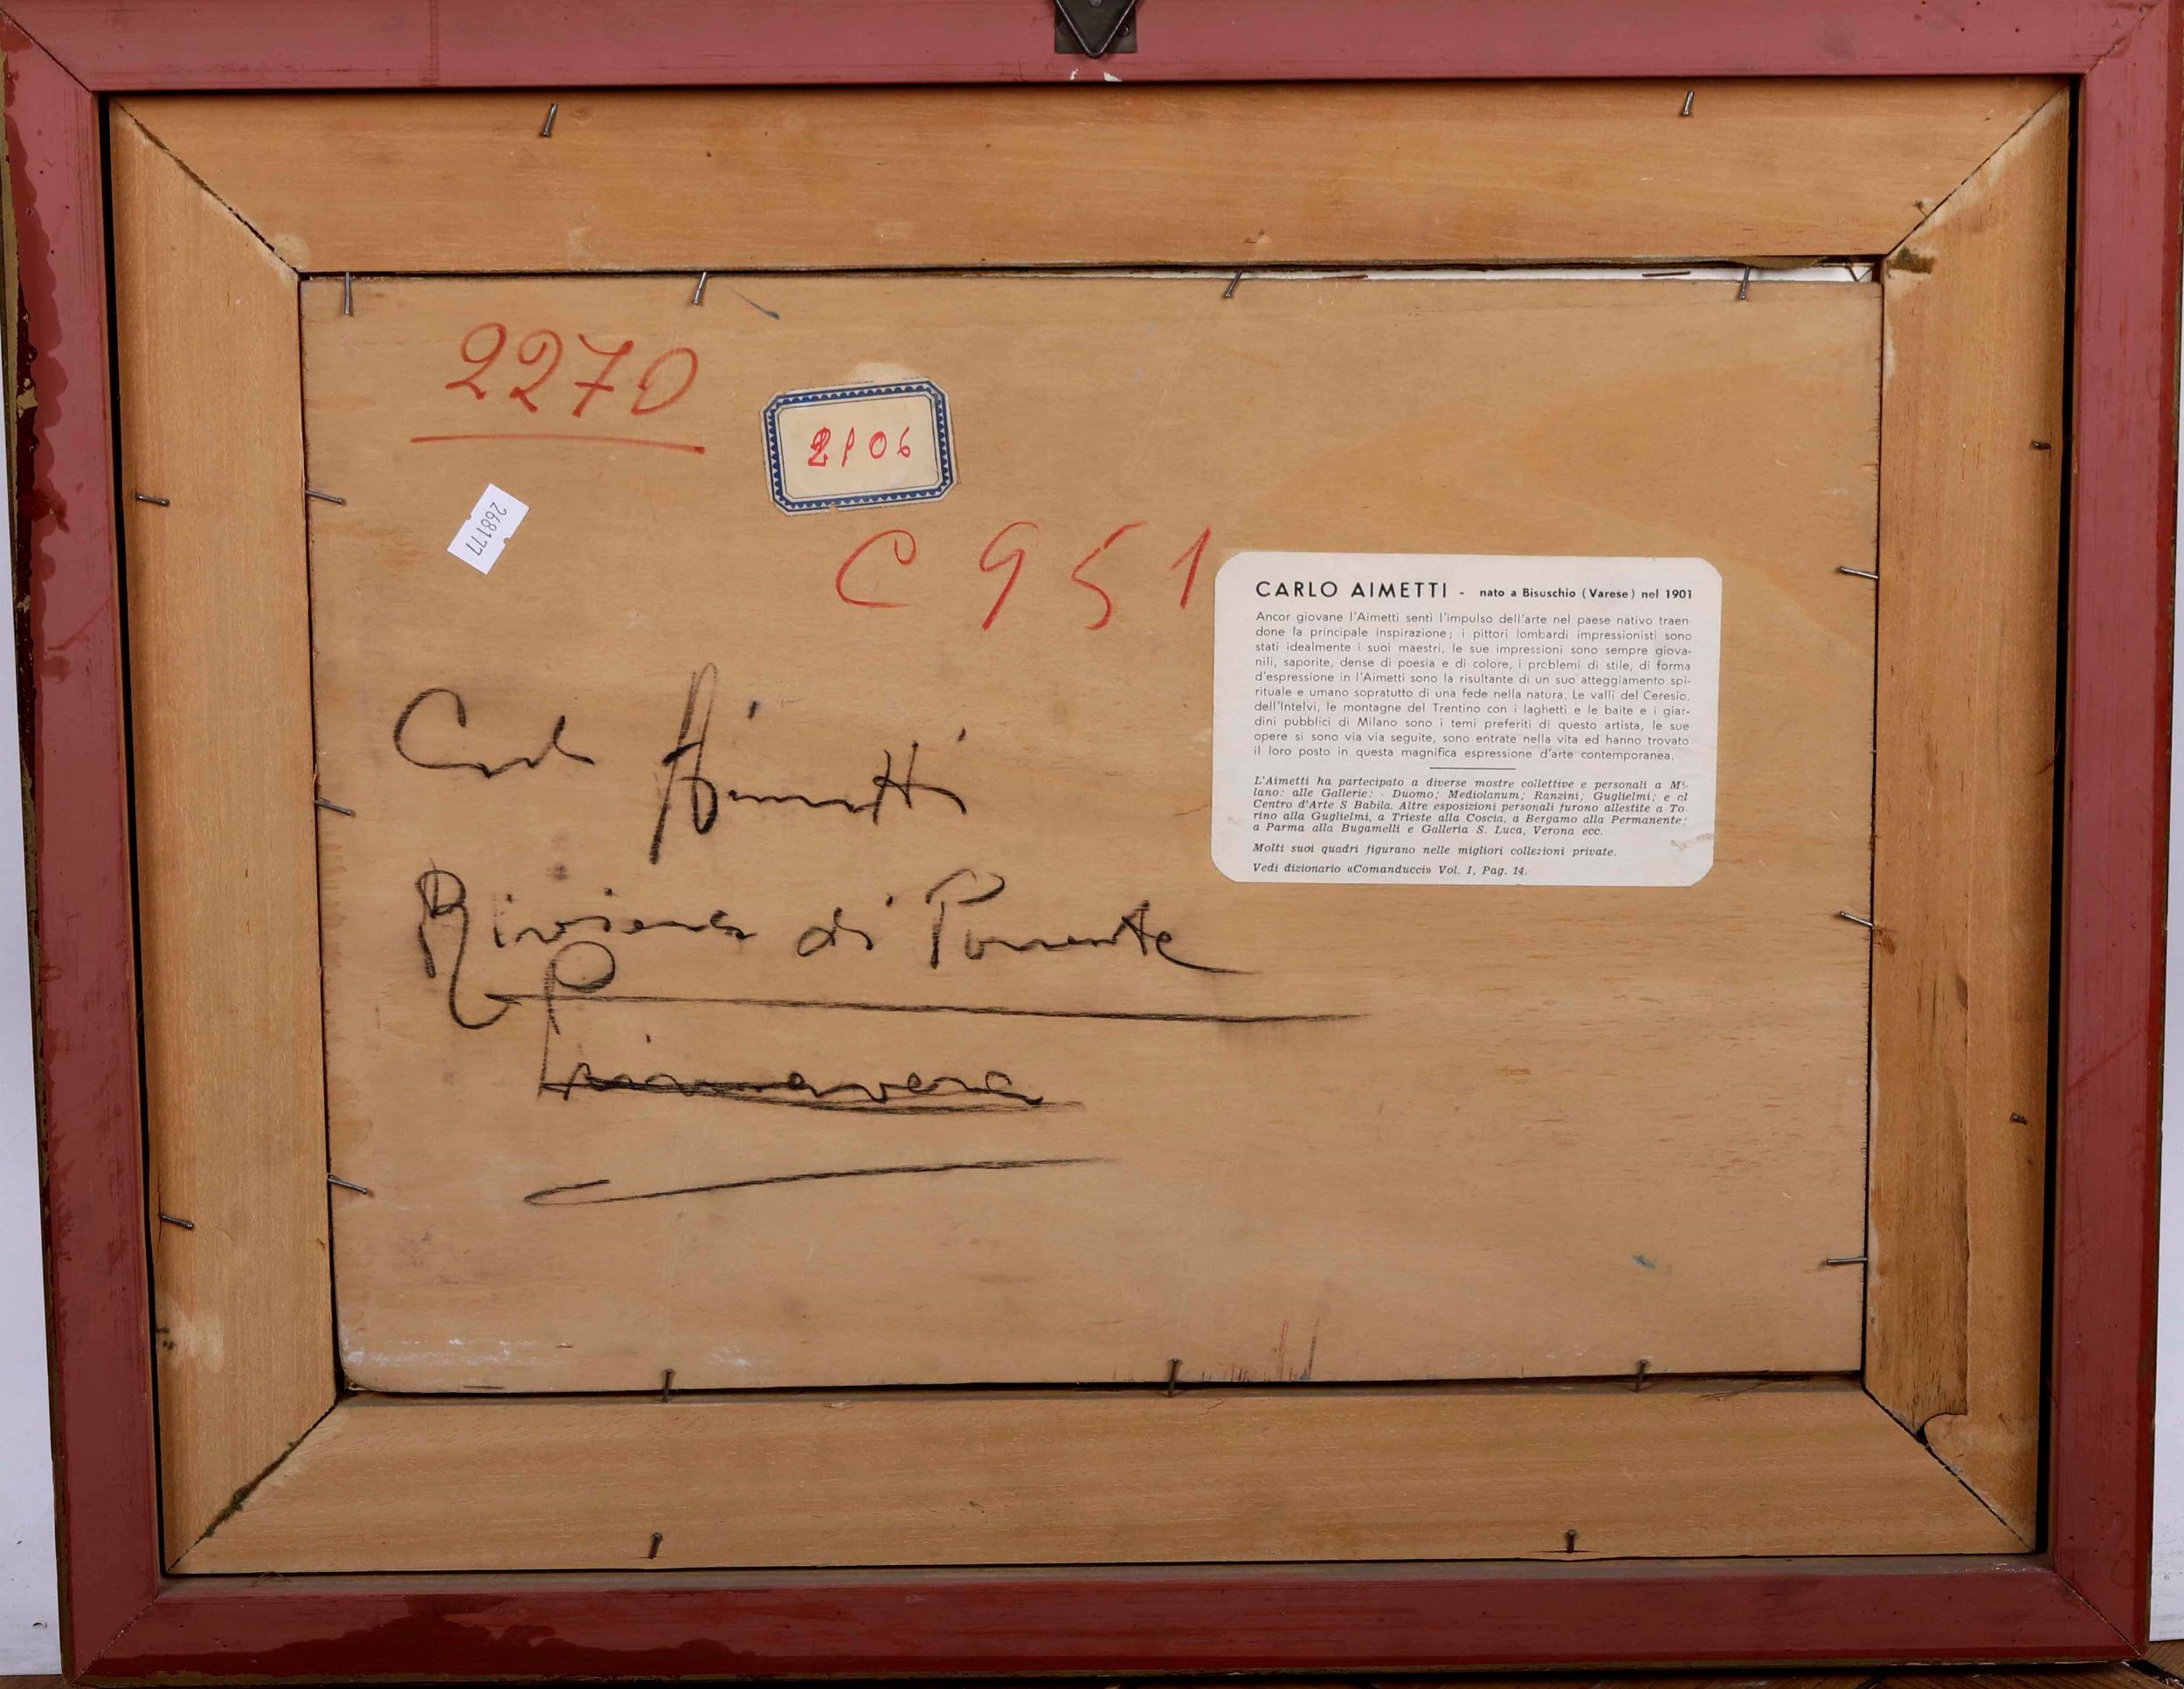 2270
2106
268177
C 951
CARLO AIMETTI - nato a Bisuschio (Varese) nel 1901
Ancor giovane l'Aimetti sentì l'impulso dell'arte nel paese nativo traen-
done la principale inspirazione; i pittori lombardi impressionisti sono
stati idealmente i suoi maestri, le sue impressioni sono sempre giova-
nili, saporite, dense di poesia e di colore, i problemi di stile, di forma
d'espressione in l'Aimetti sono la risultante di un suo atteggiamento spi-
rituale e umano sopratutto di una fede nella natura. Le valli del Ceresio,
dell'Intelvi, le montagne del Trentino con i laghetti e le baite e i giar-
dini pubblici di Milano sono i temi preferiti di questo artista, le sue
opere si sono via via seguite, sono entrate nella vita ed hanno trovato
il loro posto in questa magnifica espressione d'arte contemporanea.
L'Aimetti ha partecipato a diverse mostre collettive e personali a Mi-
lano: alle Gallerie: - Duomo; Mediolanum; Ranzini; Guglielmi; e al
Centro d'Arte S Babila. Altre esposizioni personali furono allestite a To-
rino alla Guglielmi, a Trieste alla Coscia, a Bergamo alla Permanente;
a Parma alla Bugamelli e Galleria S. Luca, Verona ecc.
Molti suoi quadri figurano nelle migliori collezioni private.
Vedi dizionario «Comanducci» Vol. I, Pag. 14.
Carlo Aimetti
Riviera di Ponente
Primavera